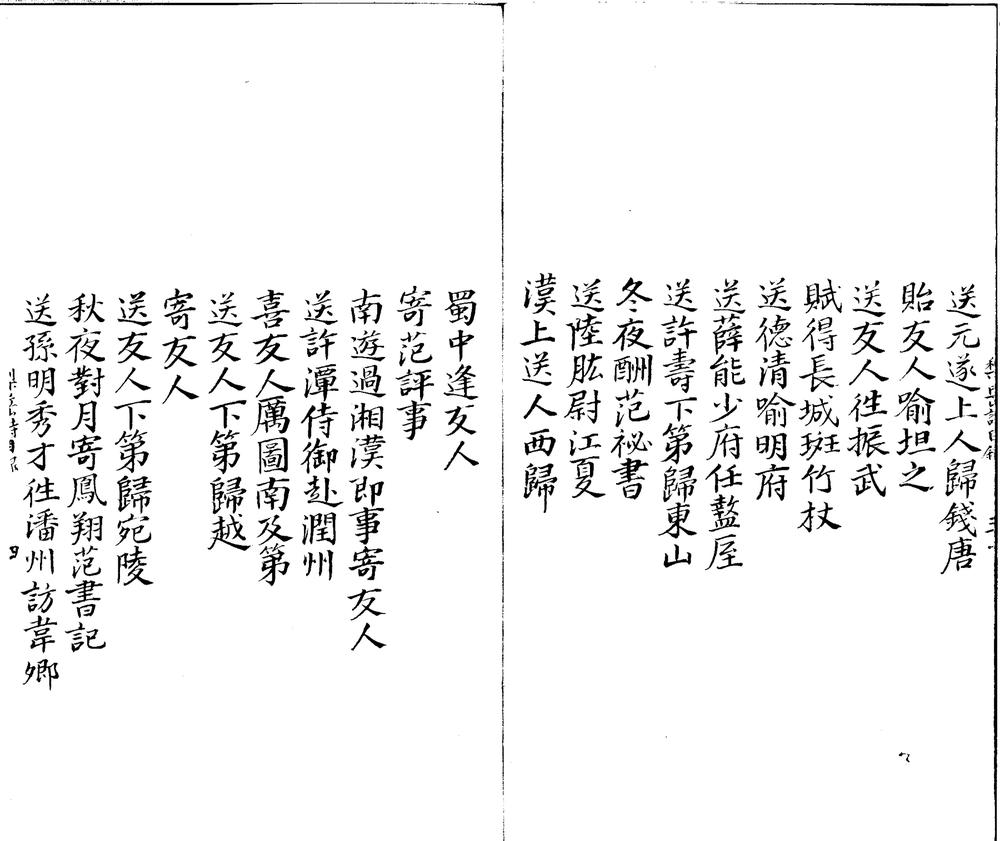 送元遂上人歸錢唐
貽友人喻坦之
送友人徃振武
賦得長城斑竹杖
送德清喻明府
送薛能少府任盩厔
送許壽下第歸東山
冬夜酬范祕書
送陸肱尉江夏
漢上送人西歸
蜀中逢友人
寄范評事
南遊過湘漢即事寄友人
送許潭侍御赴潤州
喜友人厲圖南及第
送友人下第歸越
寄友人
送友人下第歸宛陵
秋夜對月寄鳳翔范書記
送孫明秀才徃潘州訪韋卿
四